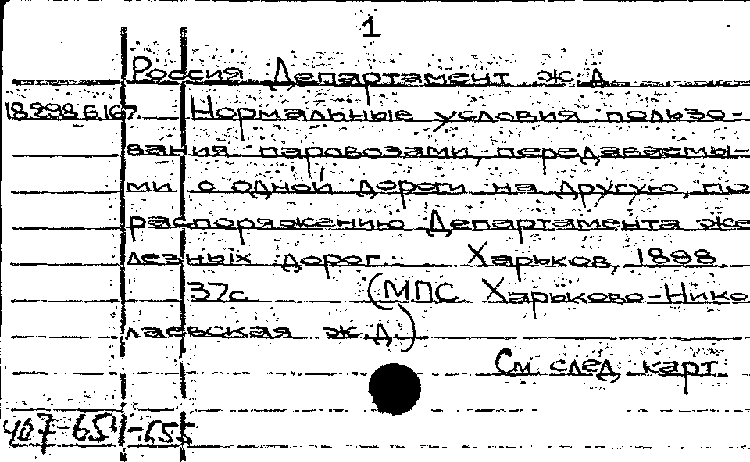 1
Россия Департамент ж.д.
Нормальные условия пользо-
вания паровозами, передаваемы-
ми с одной дороги на другую, по
распоряжению Департамента же
лезных дорог. Харьков, 1898
37с (МПС Харьково-Нико
лаевская ж.д.)
См след. карт.
407-651-655